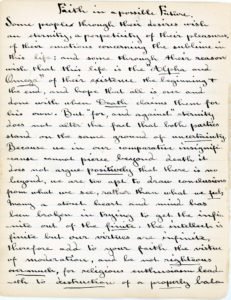 Faith in a possible Future.
Some peoples through their desires wish
an eternity, a perpetuity of their pleasures,
of their emotions concerning the sublime in
this life; and some through their reason
wish that this life is the "Alpha and
Omega" of their existence, the beginning &
the end, and hope that all is over and
done with when Death claims them for
his own. But "for, and against" eternity
does not alter the fact that both parties
stand on the same ground of uncertainty
Because we in our comparative insignifi-
cance cannot pierce beyond death, it
does not argue positively that there is no
beyond, we are too apt to draw conclusions
from what we see, rather than what we feel,
Many a stout heart and mind has
been broken in trying to get the infi-
nite out of the finite, the intellect is
finite but our virtues are infinite,
therefore add to your faith the virtue
of moderation, and be not righteous
overmuch, for religious enthusiasm lead-
eth to destruction of a properly bala-